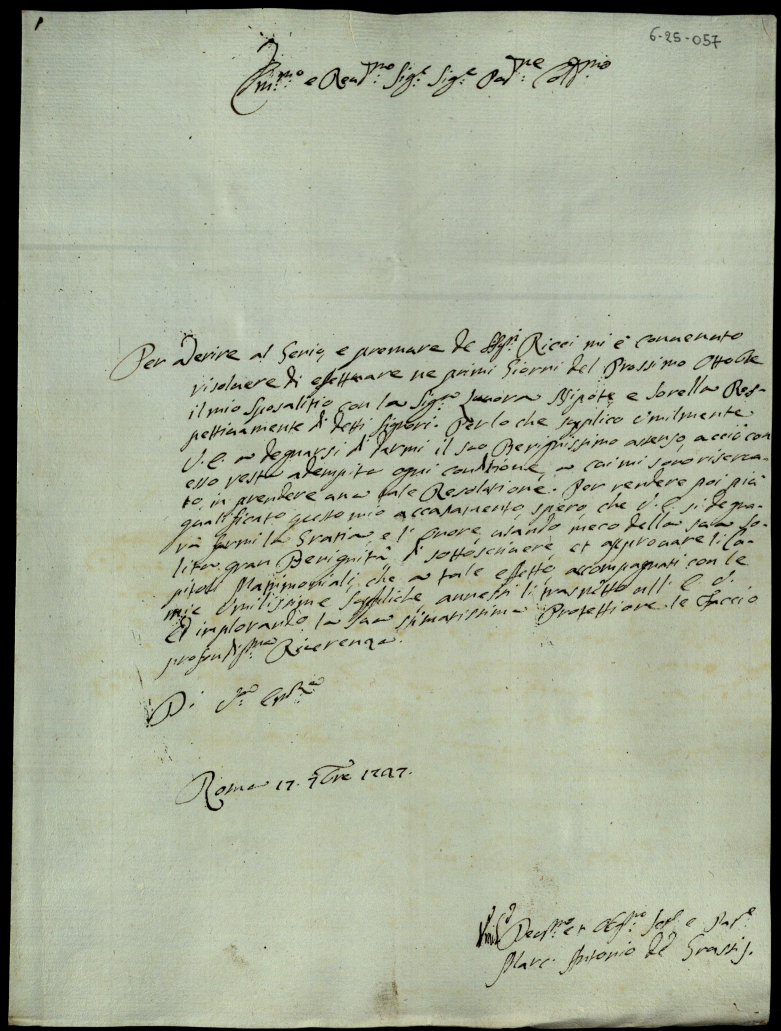 6-25-057
Em.mo e Reu.mo Sig.e Sig.e Pad.ne Col.mo
Per aderire al Genio, e premure de SS.ri Ricci mi è conuenuto
risoluere di effettuare ne primi Giorni del Prossimo Ottobre
il mio Sposalitio con la Sig.ra Nipote, e Sorella Res-
pettiuamente di detti Signori. Per lo che supplico Umilmente
V. E. a degnarsi di darmi il suo Benignissimo assenso, acciò con
esso resti adempita ogni conditione, a cui mi sono riserca-
to, in prendere una tale Resolutione. Per rendere poi più
qualificato questo mio accasamento, spero, che V. E. si degna-
rà farmi la Gratia, e l'Onore, usando meco della sua so-
lita gran Benignità di sottoscriuere, et approuare li Ca-
pitoli Matrimoniali, che a tale effetto, accompagnati con le
mie Umilissime suppliche annessi li trasmetto all' E. V.
Et implorando la sua stimatissima Protettione le faccio
profondiss.ma Riuerenza.
Di V.ra Em.za
Roma 17. 7bre 1707.
Umil.o Deuot.mo et Obl.mo Ser.e e
Marc. Antonio de Grassis.